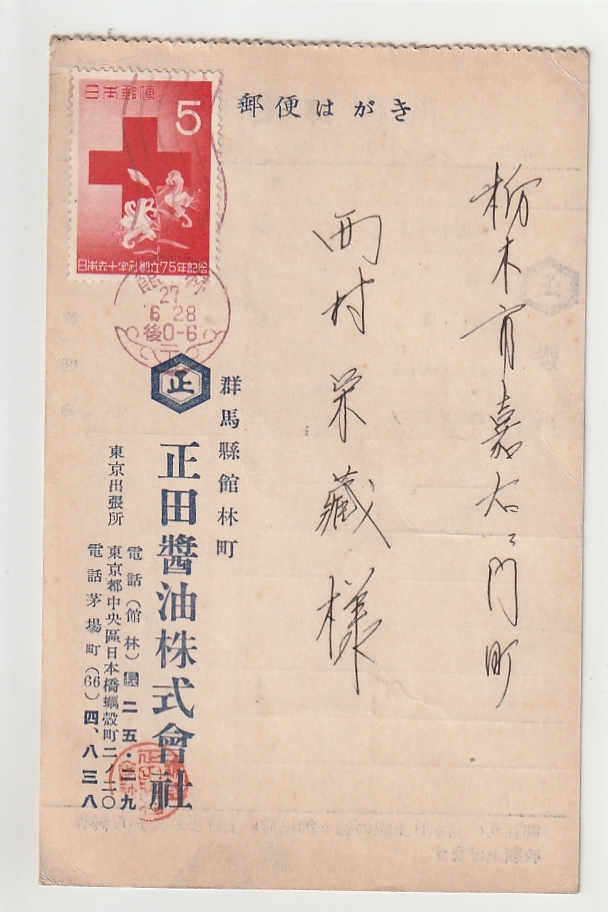 郵便はがき
日本郵便
5
日本赤十字社創立75年記念
館林
27
6 28
後0-6
栃木市嘉右ヱ門町
西村栄蔵様
群馬縣館林町
正
正田醬油株式會社
電話(館林)長二五・二九
東京出張所
東京都中央區日本橋蠣殻町二ノ二〇
電話茅場町(66)四、八三八